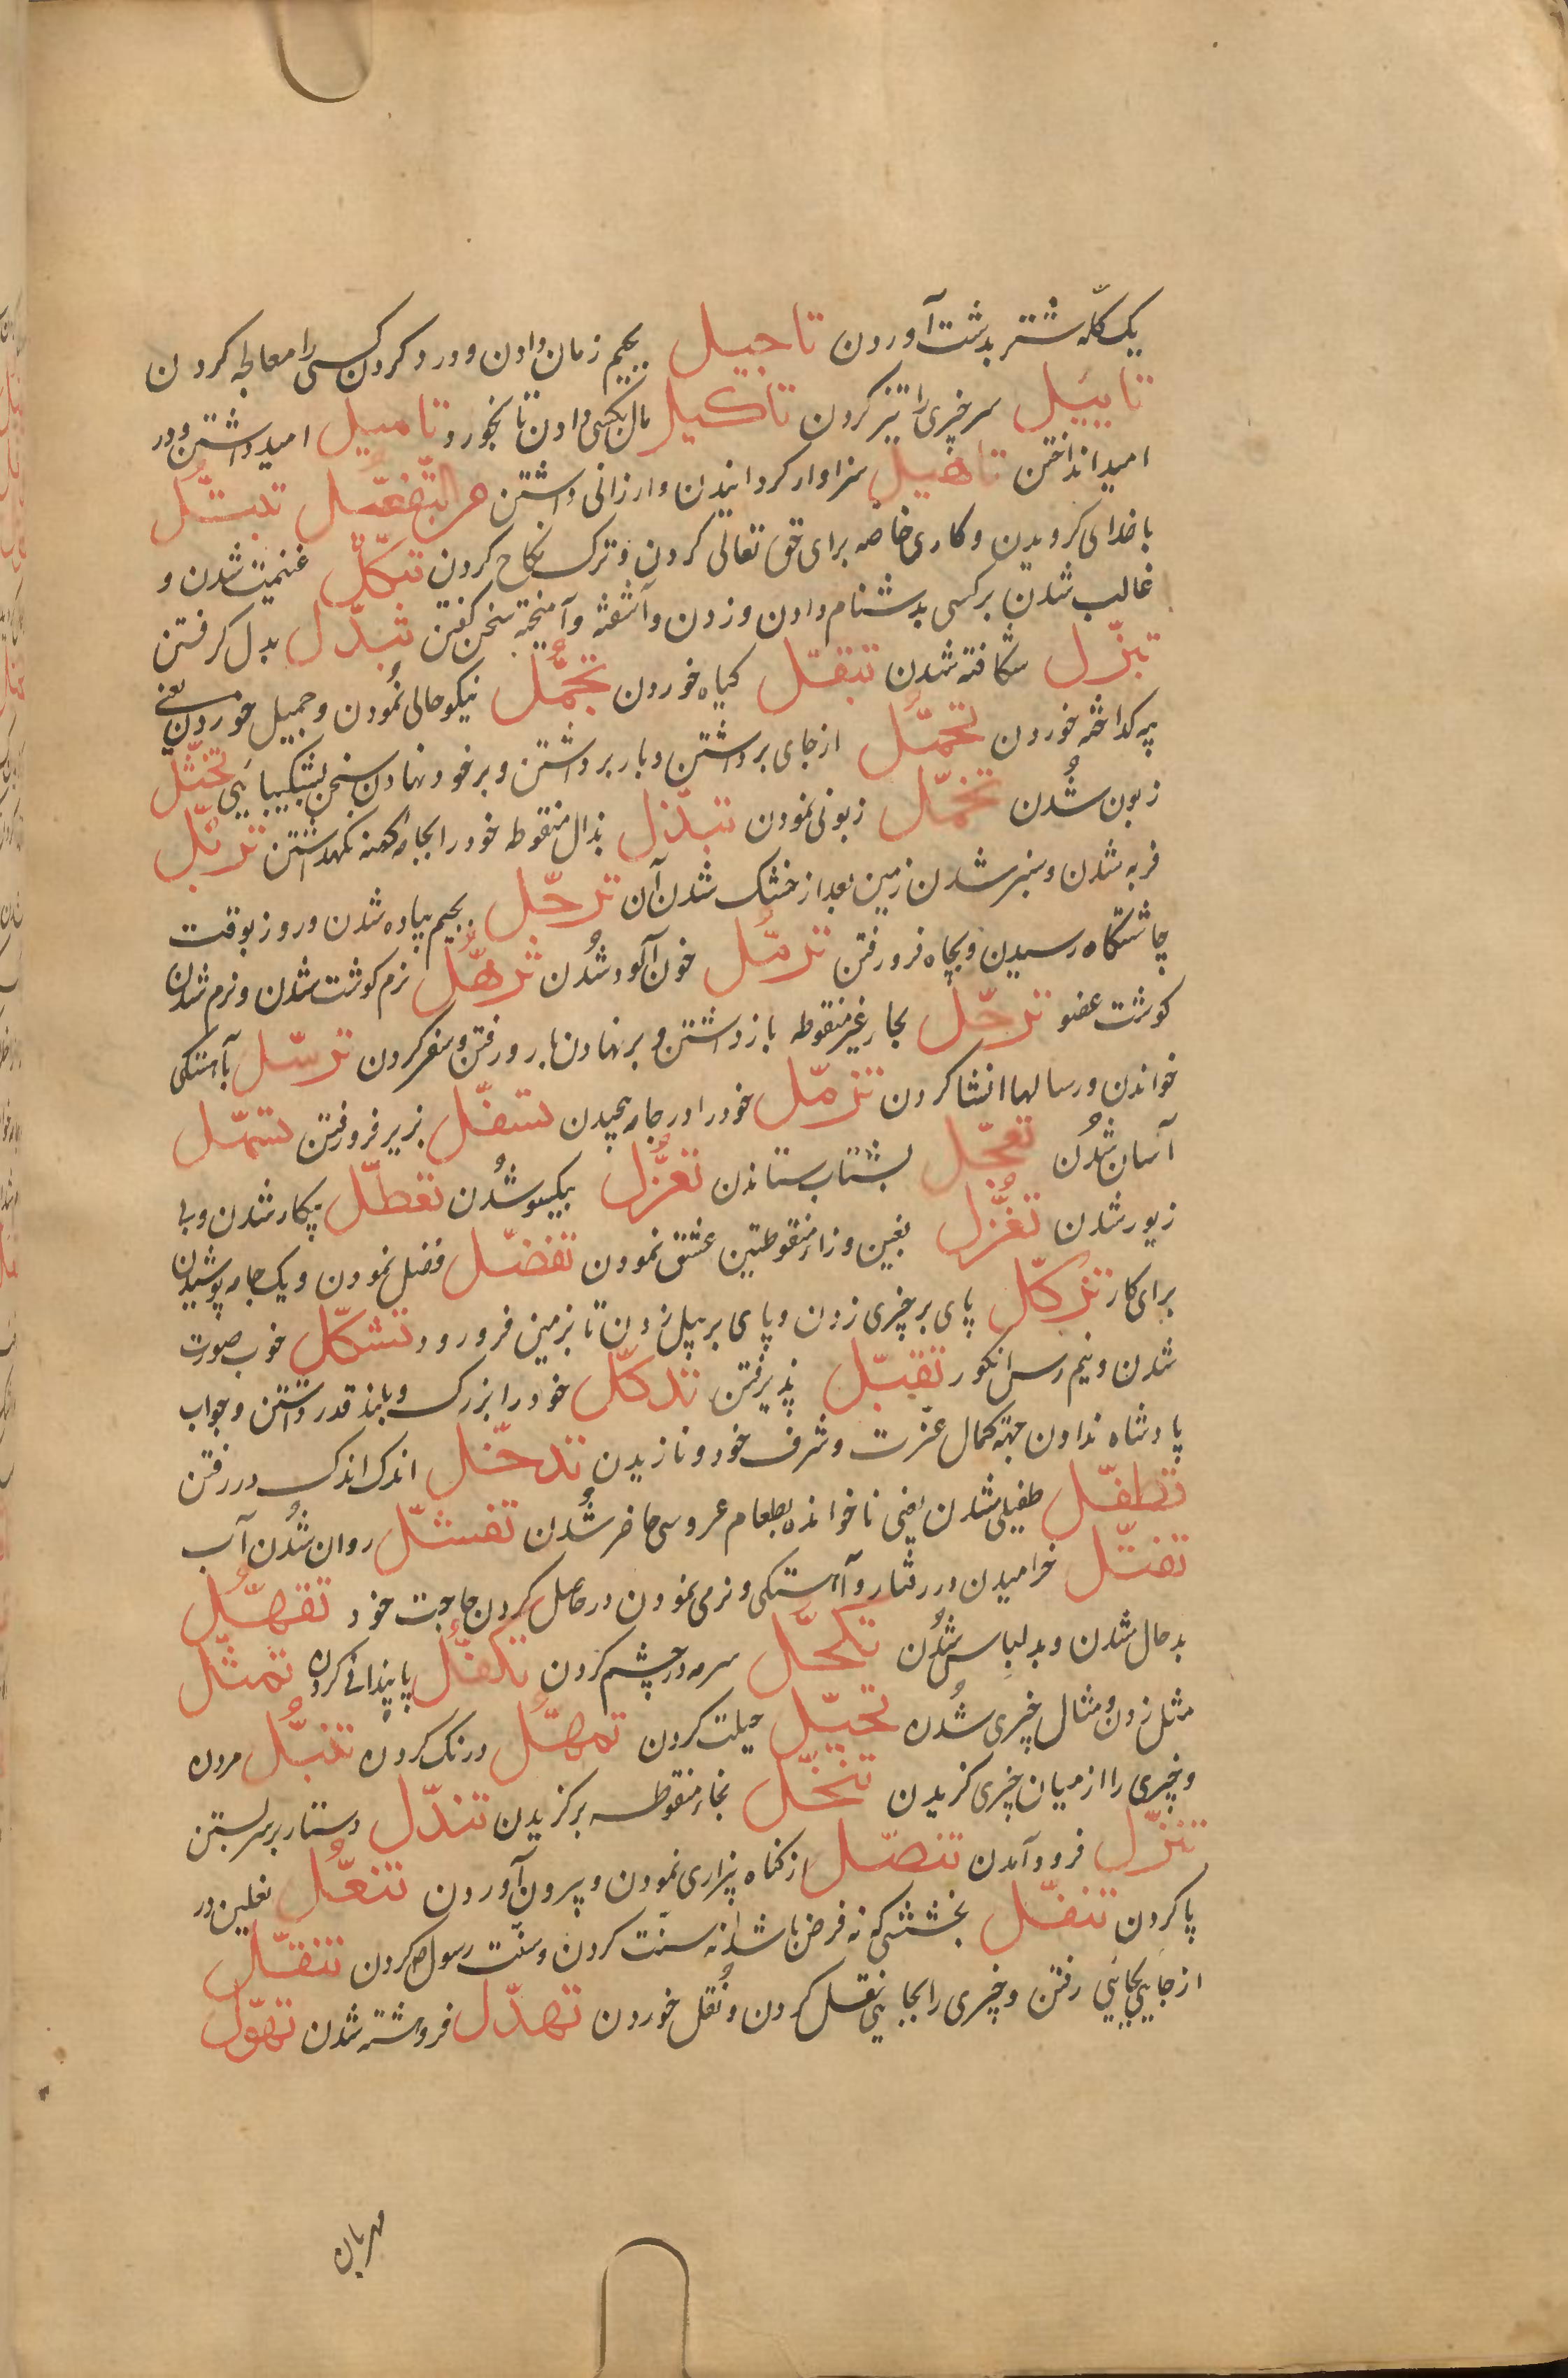 یک کلّه شتر بدشت آوردن تاجیل بجیم زمان دادن و درد کردن کسی را معالجه کردن
تاییَل سر چیزی را تیز کردن تاکیل مال بکسی دادن تا بخورد تامیل امید داشتن و در
امید انداختن تاهیل سزاوار کردانیدن و ارزانی داشتن من التّفعّل تبتّل
با خدای کرویدن و کاری خاصه برای حق تعالی کردن و ترک نکاح کردن تبکّل غنیمت شدن و
غالب شدن بر کسی بدشنام دادن و زدن و آشفته و آمیخته سخن کفتن تبدّل بدل کرفتن
تبزّل شکافته شدن تبقّل کیاه خوردن تجمُّل نیکو حالی نمُودن و جمیل خوردن یعنی
پیه کداخته خوردن تحمّل از جای برداشتن و بار برداشتن و بر خود نهادن سخن بشکیبایی تخثّل
زبون شُدن تخمّل زبونی نمودن تبذّل بذال منقوطه خود را بجامه کهنه نکهداشتن تربّل
فربه شدن و سبز شدن زمین بعد از خشک شدن آن ترجّل بجیم پیاده شدن و روز بوقت
چاشتکاه رسیدن و بچاه فرو رفتن ترمُّل خون آلود شُدن ترهُّل نرم کوشت شدن و نرم شدن
کوشت عضو ترحّل بحار غیر منقوطه باز داشتن و بر نهادن بار و رفتن و سفر کردن ترسّل بآهستکی
خواندن و رسالها انشا کردن تزمّل خود را در جامه پیچیدن تسفّل بزیر فرو رفتن تسهّل
آسان شُدن تعجّل بشتاب ستاندن تعزُّل بیکسو شُدن تعطّل بیکار شدن و بی
زیور شدن تغُزّل بغین و زاء منقوطتین عشق نمودن تفضّل فضل نمودن و یک جامه پوشیدن
برای کار ترکّل پای بر چیزی زدن و پای بر بیل زدن تا بزمین فرو رود تشکّل خوب صورت
شدن و نیم رس انکور تقبّل پذیرفتن تدکّل خود را بزرک و بلند قدر داشتن و جواب
پادشاه ندادن جهة کمال عزّت و شرف خود و نازیدن تدخّل اندک اندک در رفتن
تطفّل طفیلی شدن یعنی ناخوانده بطعام عروسی حاضر شُدن تفشّل روان شُدن آب
تفتّل خرامیدن در رفتار و آهستکی و نرمی نمودن در حاصل کردن حاجت خود تقهُّل
بد حال شدن و بد لباس شُدن تکحّل سرمه در چشم کردن تکفُّل پایندانی کردن تمثّل
مثل زدن و مثال چیزی شُدن تحیّل حیلت کردن تمهُّل درنک کردن تنبُّل مردن
و چیزی را از میان چیزی کزیدن تنخّل بخاء منقوطه برکزیدن تندّل دستار بر سر بستن
تنزّل فرود آمدن تنصّل از کناه بیزاری نمودن و بیرون آوردن تنعُّل نعلین در
پا کردن تنفّل بخششی که نه فرض باشد و نه سنت کردن و سنّت رسول ص کردن تنقّل
از جایی بجایی رفتن و چیزی را بجایی نقل کردن و نُقل خوردن تهدّل فروهشته شدن تهوّل
مهربان